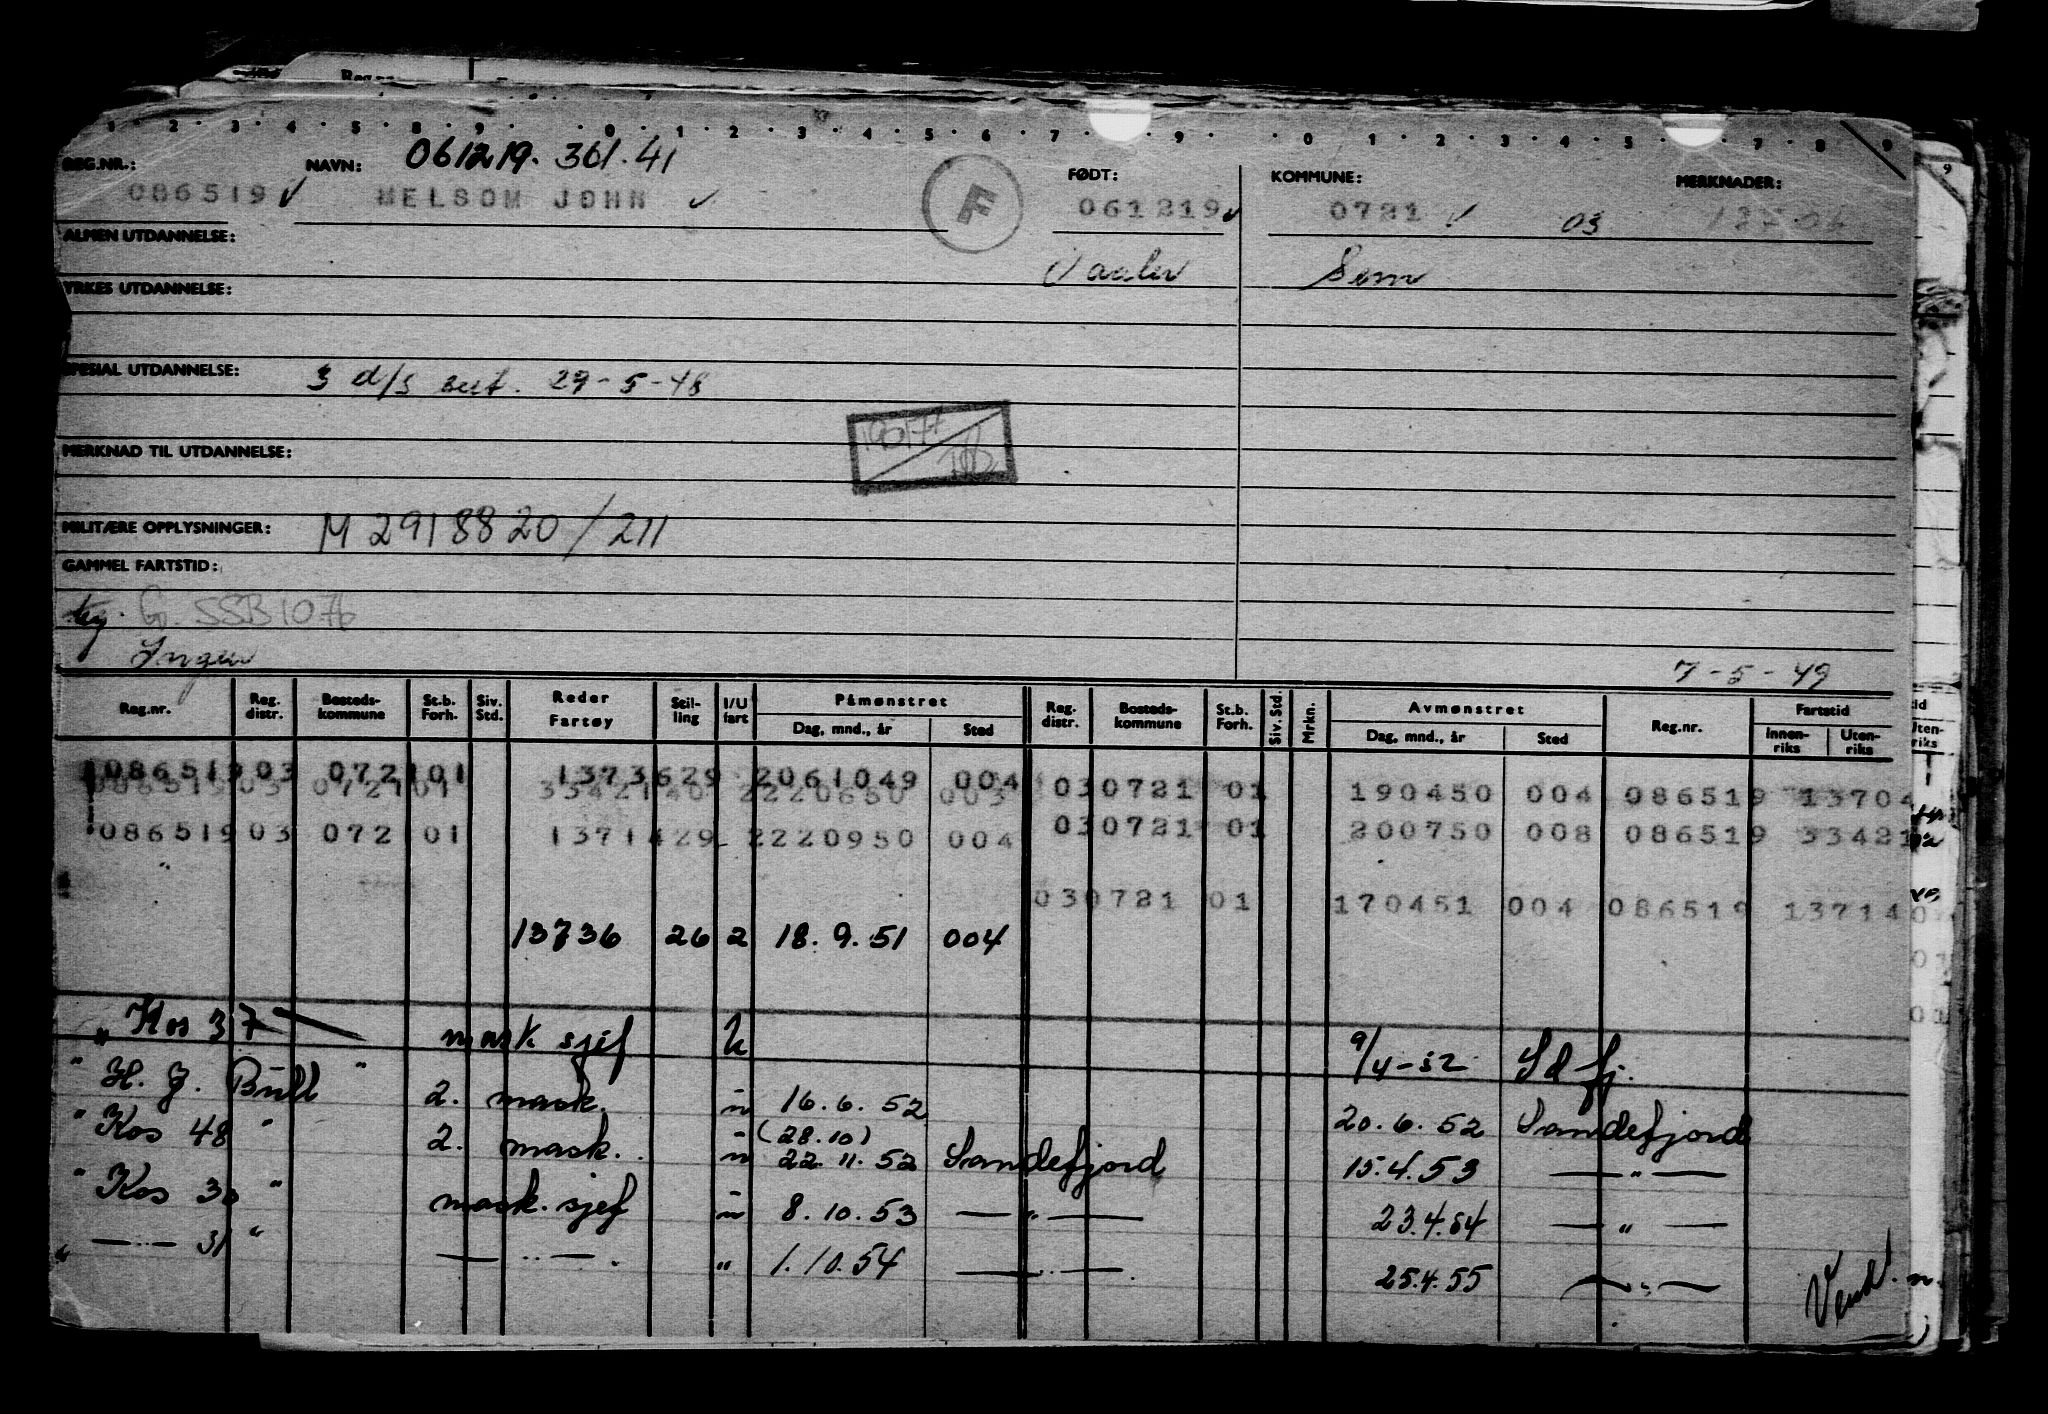 1 · 2 · 3 · 4 · 5 · 8 · 9 · · 0 · 1 · 2 · 3 · 4 · 5 · 6 · 7 · 9 · · 0 · 1 · 2 · 3 · 4 · 5 · 6 · 7 · 8 · 9
REG.NR.: NAVN: 061219. 361.41 FØDT: KOMMUNE: MERKNADER:
086519 ✓ MELSOM JOHN ✓ F 061219 ✓ 0721 ✓ 03
ALMEN UTDANNELSE: Vaaler Sem
YRKES UTDANNELSE:
SPESIAL UTDANNELSE: 3 d/s sert. 29-5-48
MERKNAD TIL UTDANNELSE:
MILITÆRE OPPLYSNINGER: M 2918820/211
GAMMEL FARTSTID:
G. SSB 1076
Ingen 7-5-49
Reg.nr. Reg. distr. Bosteds-kommune St.b. Forh. Siv. Std. Reder Fartøy Stil-ling I/U fart Påmønstret Dag, mnd., år Sted Reg. distr. Bosteds-kommune St.b. Forh. Siv. Std. Mrkn. Avmønstret Dag, mnd., år Sted Reg.nr. Fartstid Innen-riks Uten-riks
086519 03 0721 01 13736 29 2 061049 004 03 0721 01 190450 004 086519 13704
086519 03 0721 01 33421 40 2 220650 003
086519 03 072 01 13714 29 2 220950 004 03 0721 01 200750 008 086519 33421
03 0721 01 170451 004 086519 13714
13736 26 2 18.9.51 004
" Kos 37 mask sjef u 9/4-52 Sd fj.
" H. J. Bull " 2. mask. " 16.6.52 20.6.52 Sandefjord
" Kos 48 " 2. mask. " (28.10) 22.11.52 Sandefjord 15.4.53 — " —
" Kos 30 " mask. sjef " 8.10.53 — " — 23.4.54 — " —
" — " — 31 " — " — " 1.10.54 — " — 25.4.55 — " —
Vend!